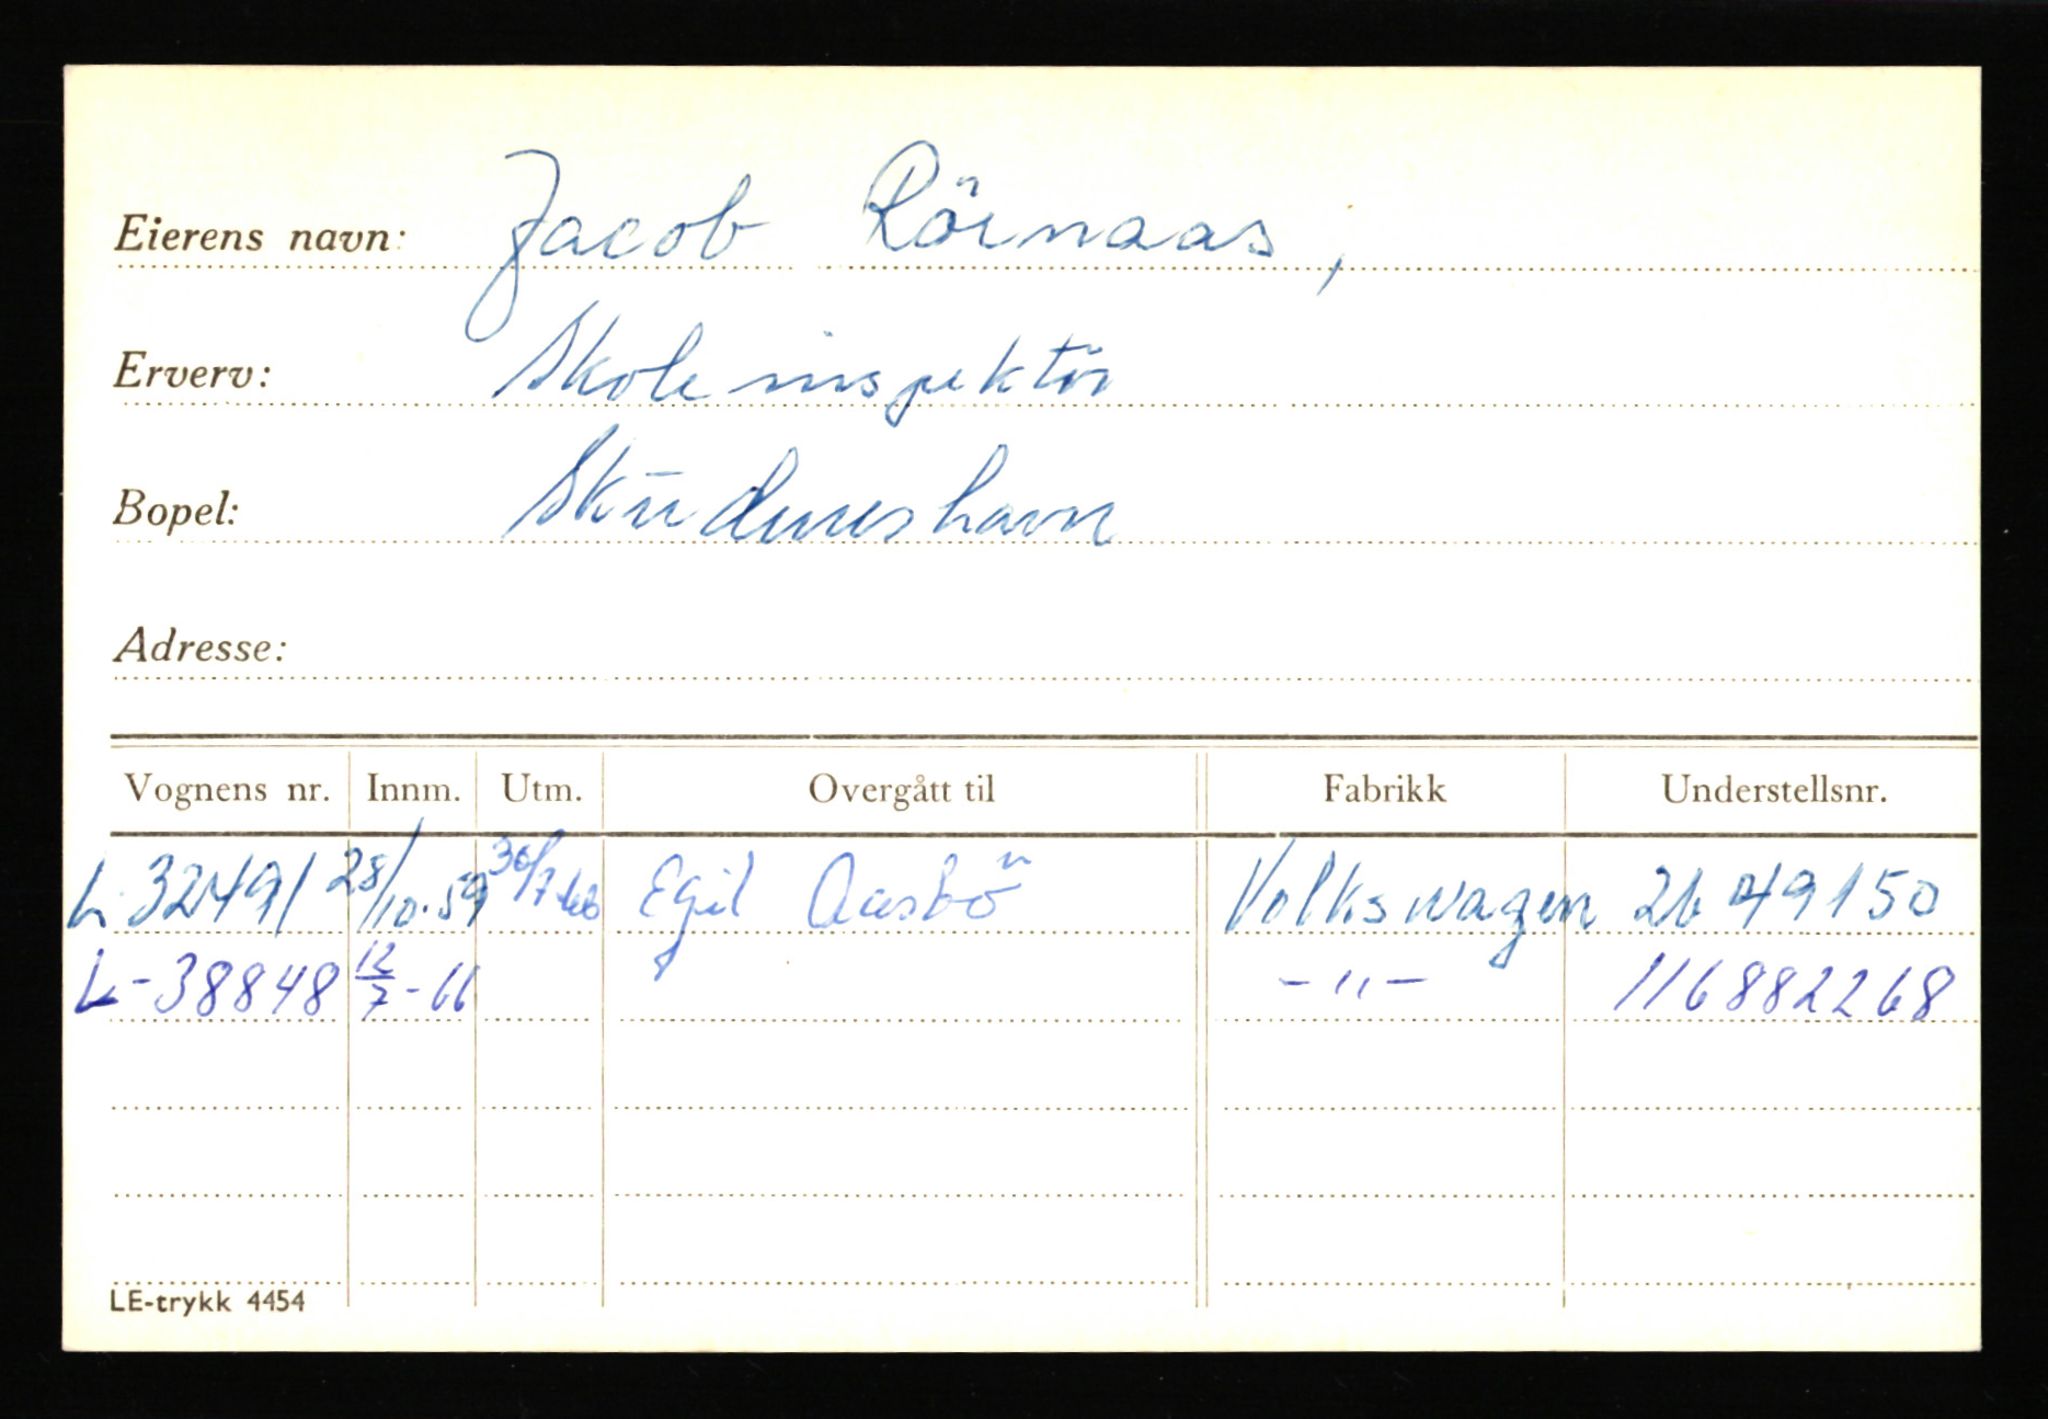 Eierens navn: Jacob Rörnaas,
Erverv: Skoleinspektör
Bopel: Skudeneshavn
Adresse:
Vognens nr. Innm. Utm. Overgått til Fabrikk Understellsnr.
L-32491 28/10-59 30/7-66 Egil Aasbö Volkswagen 2649150
L-38848 12/7-66 -"- 116882268
LE-trykk 4454